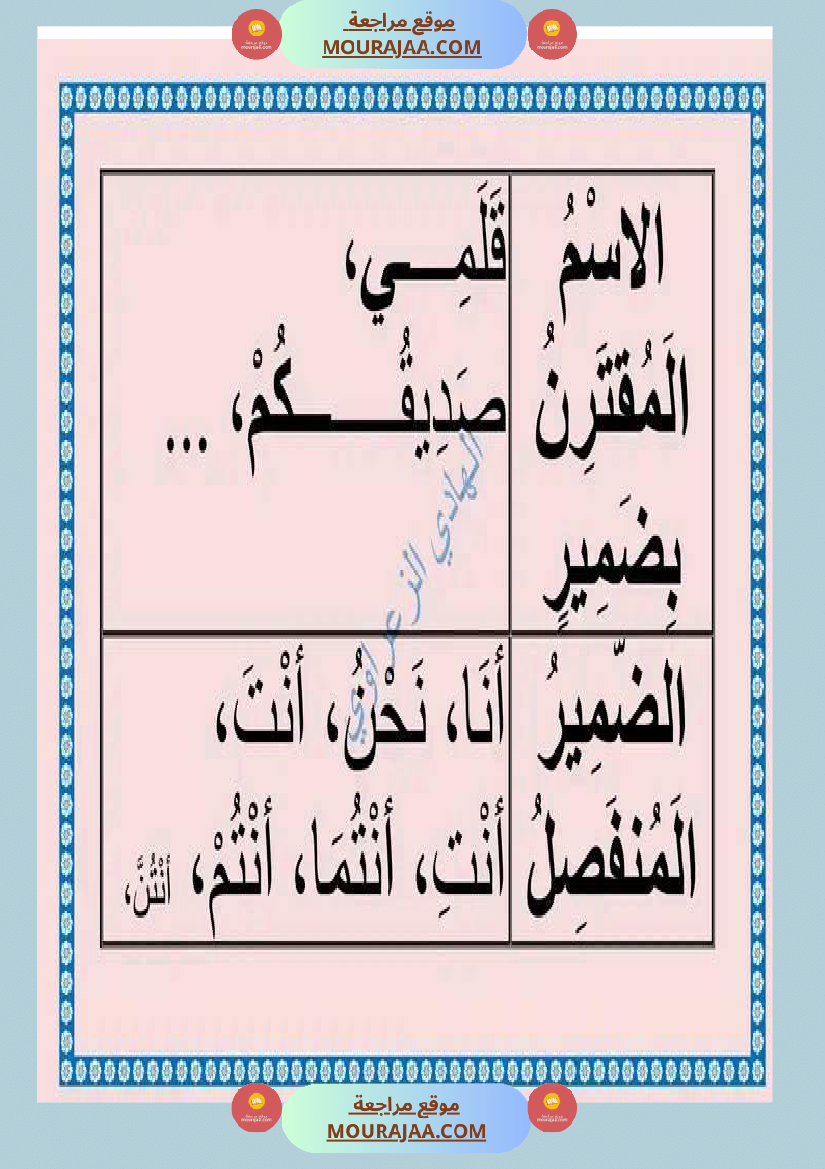 موقع مراجعة
MOURAJAA.COM
الاسْمُ
المُقتَرِنُ
بِضَمِيرٍ
قَلَمِـــي،
صَدِيقُـــــكُمْ، ...
الضّمِيرُ
المُنفَصِلُ
أَنَا، نَحْنُ، أَنْتَ،
أَنْتِ، أَنْتُمَا، أَنْتُمْ، أَنْتُنَّ،
الهادي الزعراوي
موقع مراجعة
MOURAJAA.COM